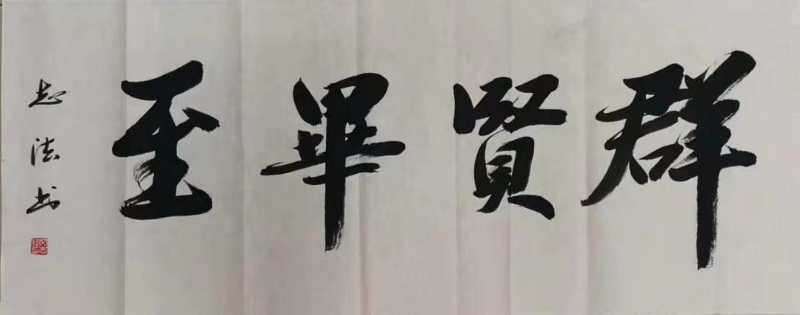 群賢畢至
志法书